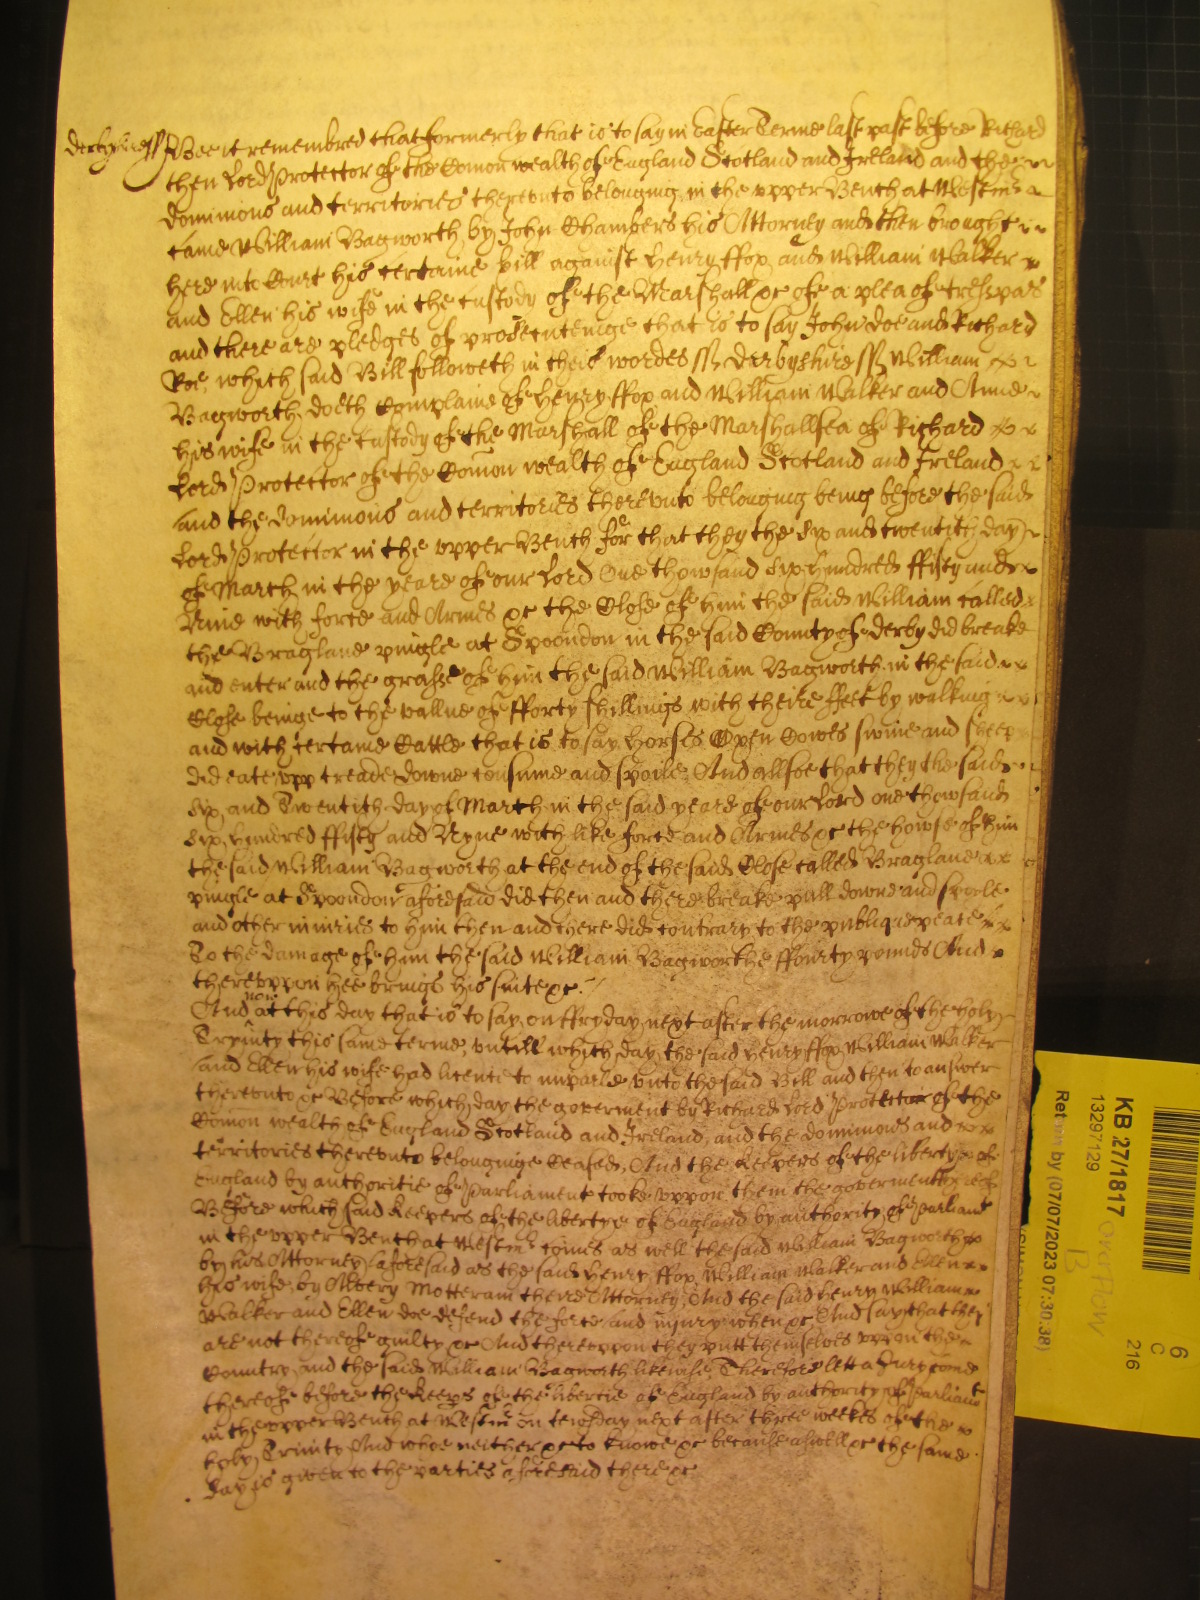 Derbyshire ss Bee it remembred that formerly that is to say in Easter Terme last past before Richard
then Lord Protector of the Comon wealth of England Scotland and Ireland and the
dominions and territories thereunto belonging in the upper Bench at Westmr
came William Bagworth by John Chambers his Attorney and then brought
here into Court his certaine bill against Henry ffox and William Walker
and Ellen his wife in the custody of the Marshall &c of a plea of trespas
and there are pledges of prosecuteinge that is to say John Doe and Richard
Roe, which said Bill followeth in theis wordes ss Derbyshire ss William
Bagworth doeth Complaine of Henry ffox and William Walker and Anne
his wife in the Custody of the Marshall of the Marshallsea of Richard
Lord Protector of the Comon wealth of England Scotland and Ireland
and the dominions and territories thereunto belonging being before the said
Lord Protector in the upper Bench for that they the six and twentith day
of March in the yeare of our Lord One thowsand six hundred ffifty and
Nine with force and Armes &c the Close of him the said William called
the Bragland pingle at Spoondon in the said County of derby did breake
and enter and the grasse of him the said William Bagworth in the said
Close beinge to the vallue of fforty shillings with theire ffeet by walking
and with certaine Cattle that is to say horses Oxen Cowes swine and sheep
did eate upp treade downe consume and spoile And allsoe that they the said
six and Twentith day of March in the said yeare of our Lord one thowsand
six hundred ffifty and Nyne with like force and Armes &c the howse of him
the said William Bagworth at the end of the said Close called Bragland
pingle at Spoondon aforesaid did then and there breake pull downe and spoile
and other iniuries to him then and there did contrary to the publique peace
To the damage of him the said William Bagworthe ffourty pounds And
thereuppon hee brings his suite &c.
And now at this day that is to say on ffryday next after the morrowe of the holy
Trynity this same terme, untill which day the said Henry ffox William Walker
and Ellen his wife had licence to imparle unto the said Bill and then to answer
thereunto &c Before which day the goverment by Richard Lord Protector of the
Comon wealth of England Scotland and Ireland, and the dominions and
territories thereunto belonginge Ceased, And the Keepers of the liberty of
England by authoritie of Parliament tooke uppon them the goverment
Before which said Keepers of the libertye of England by authority of Parliamt
in the upper Bench at Westmr comes as well the said William Bagworth
by his Attorney aforesaid as the said Henry ffox William Walker and Ellen
his wife by Albery Motteram theire Attorney, And the said Henry William
Walker and Ellen doe defend the force and iniury when &c And say that they
are not thereof guilty &c And thereuppon they putt themselves uppon the
Country, and the said William Bagworth likewise Therefore lett a Jury come
thereof before the Keeps of the libertie of England by authority of Parliamt
in the upper Bench at Westmr on tewsday next after three weekes of the
holy Trinity And whoe neither &c to knowe &c because aswell &c the same
day is given to the parties aforesaid there &c
KB 27/1817
13297129
Return by (07/07/2023 07:30:38)
overflow
B
6
C
216